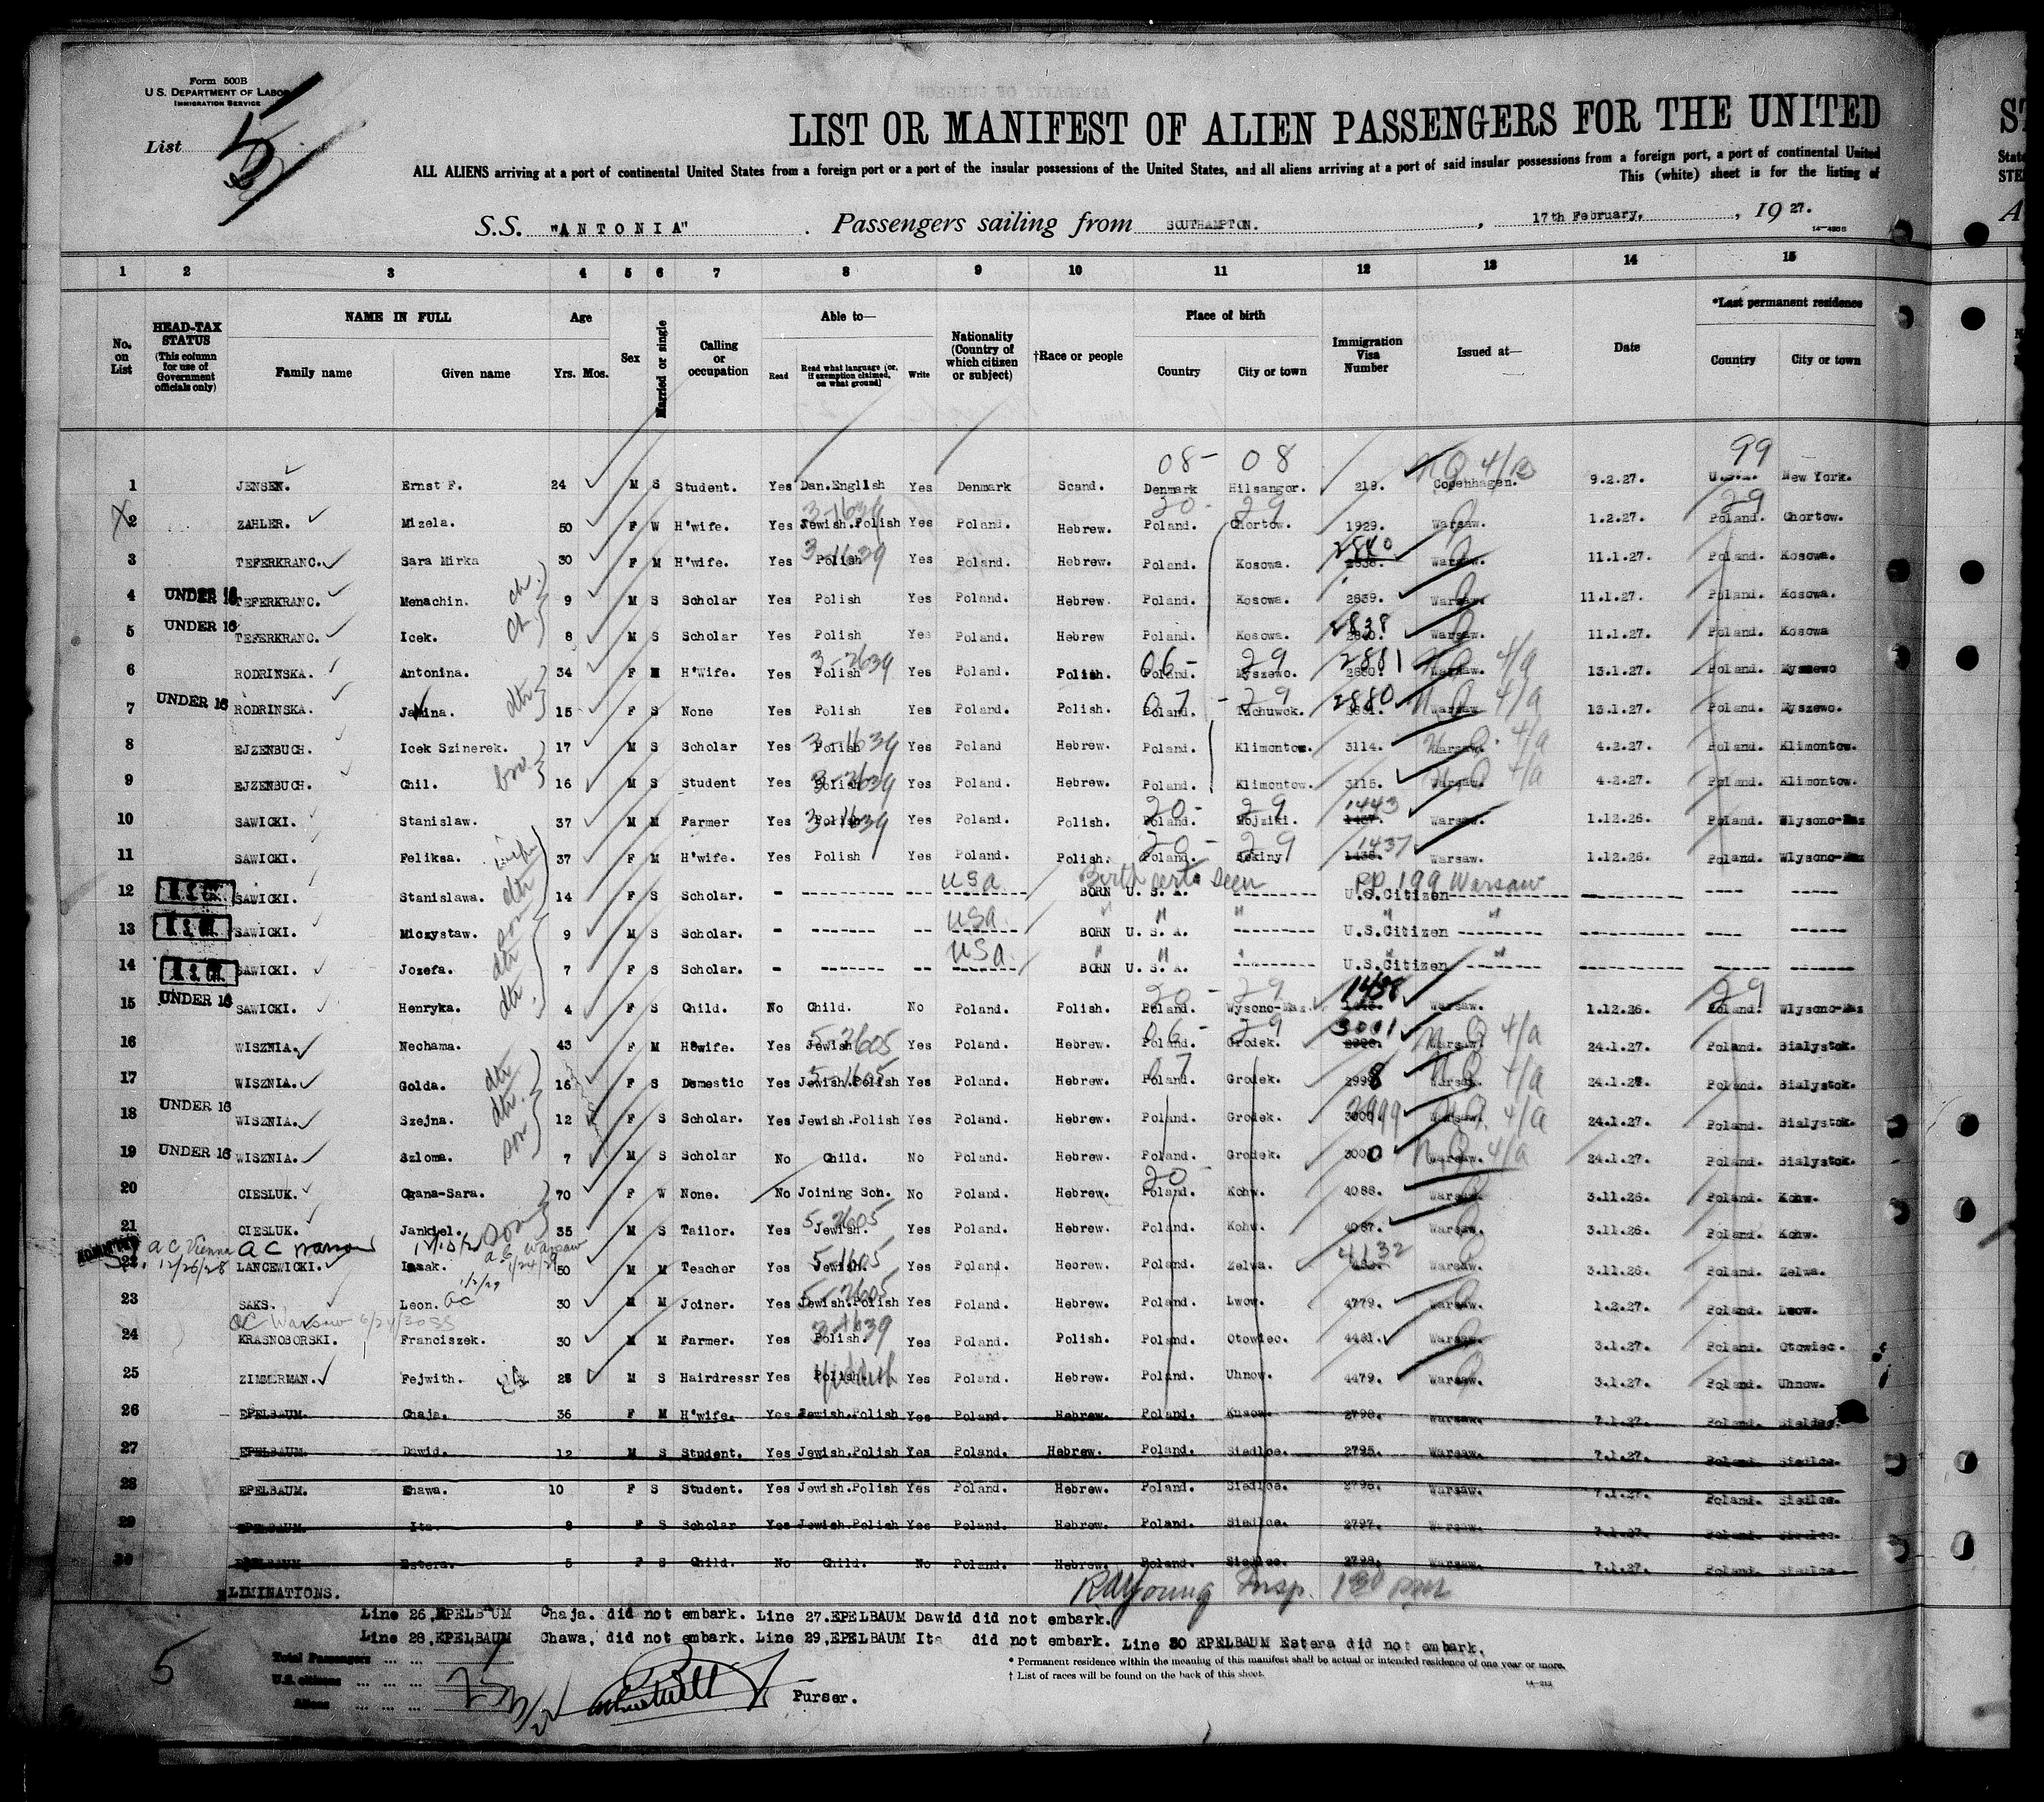 Form 500B
U. S. DEPARTMENT OF LABOR
IMMIGRATION SERVICE
List 5
LIST OR MANIFEST OF ALIEN PASSENGERS FOR THE UNITED
ALL ALIENS arriving at a port of continental United States from a foreign port or a port of the insular possessions of the United States, and all aliens arriving at a port of said insular possessions from a foreign port, a port of continental United
This (white) sheet is for the listing of
S.S. "ANTONIA" . Passengers sailing from SOUTHAMPTON. , 17th February, , 19 27.
1 2 3 4 5 6 7 8 9 10 11 12 13 14 15
No. on List HEAD-TAX STATUS (This column for use of Government officials only) NAME IN FULL Family name Given name Age Yrs. Mos. Sex Married or single Calling or occupation Able to— Read Read what language (or, if exemption claimed, on what ground) Write Nationality (Country of which citizen or subject) †Race or people Place of birth Country City or town Immigration Visa Number Issued at— Date *Last permanent residence Country City or town
08- 08 N Q 4/ 99
1 JENSEN. Ernst F. 24 M S Student. Yes Dan.English Yes Denmark Scand. Denmark Hilsangor. 219. Copenhagen. 9.2.27. U.S.A. New York.
3-1639 20- 29 29
X 2 ZAHLER. Mizela. 50 F W H'wife. Yes Jewish.Polish Yes Poland. Hebrew. Poland. Chortow. 1929. Warsaw. 1.2.27. Poland. Chortow.
3 TEFERKRANC. Sara Mirka 30 F M H'wife. Yes Polish 3-1639 Yes Poland. Hebrew. Poland. Kosowa. 2840 Warsaw. 11.1.27. Poland. Kosowa.
4 UNDER 16 TEFERKRANC. Menachin. ch. 9 M S Scholar Yes Polish Yes Poland. Hebrew. Poland. Kosowa. 2839. Warsaw. 11.1.27. Poland. Kosowa.
5 UNDER 16 TEFERKRANC. Icek. ch. 8 M S Scholar Yes Polish Yes Poland. Hebrew Poland. Kosowa. 2838 Warsaw. 11.1.27. Poland. Kosowa
6 RODRINSKA. Antonina. 34 F M H'Wife. Yes Polish 3-2639 Yes Poland. Polish. 06- Poland. 29 Myszewo. 2881 Warsaw. N Q 4/a 13.1.27. Poland. Myszewo
7 UNDER 16 RODRINSKA. Janina. dtr 15 F S None Yes Polish Yes Poland. Polish. 07 - Poland. 29 2880 Warsaw. N Q 4/a 13.1.27. Poland. Myszewo.
8 EJZENBUCH. Icek Szinerek. 17 M S Scholar Yes Polish 3-1639 Yes Poland Hebrew. Poland. Klimontow. 3114. Warsaw. N Q. 4/a 4.2.27. Poland. Klimontow.
9 EJZENBUCH. Chil. bro. 16 M S Student Yes Polish 3-2639 Yes Poland. Hebrew. Poland. Klimontow. 3115. Warsaw. N Q 4/a 4.2.27. Poland. Klimontow.
10 SAWICKI. Stanislaw. 37 M M Farmer Yes Polish 3-1639 Yes Poland. Polish. 20- Poland. 29 1443 Warsaw. 1.12.26. Poland. Wlysono-Maz
11 SAWICKI. Feliksa. wife 37 F M H'wife. Yes Polish Yes Poland. Polish. 20- Poland. 29 1437 Warsaw. 1.12.26. Poland. Wlysono-Maz
12 SAWICKI. Stanislawa. dtr 14 F S Scholar. - ------- -- USA Birth certs seen BORN U. S. A. --------- PP 199 Warsaw U.S.Citizen
13 SAWICKI. Miczystaw. son 9 M S Scholar. - ------- -- USA BORN U. S. A. " " " --------- U.S.Citizen " "
14 SAWICKI. Jozefa. dtr 7 F S Scholar. - ------- -- USA BORN U. S. A. " " " --------- U.S.Citizen "
15 UNDER 16 SAWICKI. Henryka. dtr. 4 F S Child. No Child. No Poland. Polish. 20 - Poland. 29 Wysono-Maz. 1438 Warsaw. 1.12.26. 29 Poland. Wlysono-Maz
16 WISZNIA. Nechama. 43 F M H'wife. Yes Jewish 5-2605 Yes Poland. Hebrew. 06- Poland. 29 Grodek. 3001 Warsaw. N Q 4/a 24.1.27. Poland. Bialystok.
17 WISZNIA. Golda. dtr 16 F S Domestic Yes Jewish.Polish 5-1605 Yes Poland. Hebrew. 07 Poland. Grodek. 2998 Warsaw. N Q 4/a 24.1.27. Poland. Bialystok.
18 UNDER 16 WISZNIA. Szejna. dtr. 12 F S Scholar. Yes Jewish.Polish Yes Poland. Hebrew. Poland. Grodek. 2999 Warsaw. N Q. 4/a 24.1.27. Poland. Bialystok.
19 UNDER 16 WISZNIA. Szloma. son 7 M S Scholar No Child. No Poland. Hebrew. Poland. Grodek. 3000 Warsaw. N Q 4/a 24.1.27. Poland. Bialystok.
20 CIESLUK. Chana-Sara. 70 F W None. No Joining Son. No Poland. Hebrew. 20- Poland. Kohw. 4088. Warsaw. 3.11.26. Poland. Kohw.
21 CIESLUK. Jankiel. son 35 M S Tailor. Yes Jewish. 5-2605 Yes Poland. Hebrew. Poland. Kohw. 4087. Warsaw. 3.11.26. Poland. Kohw.
ADMITTED a C Vienna 12/26/28 a C Warsaw a C Warsaw 1/24/29
22. LANCEWICKI. Izaak. 50 M M Teacher Yes Jewish. 5-1605 Yes Poland Hebrew. Poland. Zelwa. 4132 Warsaw. 3.11.26. Poland. Zelwa.
1/2/29 ac
23 SAKS. Leon. 30 M M Joiner. Yes Jewish.Polish 5-2605 Yes Poland. Hebrew. Poland. Lwow. 4779. Warsaw. 1.2.27. Poland. Lwow.
ac Warsaw 6/24/30 SS
24 KRASNOBORSKI. Franciszek. 30 M M Farmer. Yes Polish. 3-1639 Yes Poland. Polish. Poland. Otowiec. 4481. Warsaw. 3.1.27. Poland. Otowiec.
25 ZIMMERMAN. Fejwith. 28 M S Hairdressr Yes Polish. Yiddish Yes Poland. Hebrew. Poland. Uhnow. 4479. Warsaw. 3.1.27. Poland. Uhnow.
26 EPELBAUM. Chaja. 36 F M H'wife. Yes Jewish.Polish Yes Poland. Hebrew. Poland. 2798. Warsaw. 7.1.27. Poland. Sieldec.
27 EPELBAUM. Dawid. 12 M S Student. Yes Jewish.Polish Yes Poland. Hebrew. Poland. Siedlce. 2795. Warsaw. 7.1.27. Poland. Siedlce.
28 EPELBAUM. Chawa. 10 F S Student. Yes Jewish.Polish Yes Poland. Hebrew. Poland. Siedlce. 2796. Warsaw. 7.1.27. Poland. Siedlce.
29 EPELBAUM. Ita. 8 F S Scholar Yes Jewish.Polish Yes Poland. Hebrew. Poland. Siedlce. 2797. Warsaw. 7.1.27. Poland. Siedlce.
30 EPELBAUM Estera. 5 F S Child. No Child. No Poland. Hebrew. Poland. Siedlce. 2798. Warsaw. 7.1.27. Poland. Siedlce
ELIMINATIONS. RAYoung Insp.
Line 26,EPELBAUM Chaja. did not embark. Line 27.EPELBAUM Dawid did not embark.
Line 28,EPELBAUM Chawa, did not embark. Line 29,EPELBAUM Ita did not embark. Line 30 EPELBAUM Estera did not embark.
5 Total Passengers ... ...
U.S. citizens ... ... ...
Aliens ... ... ...
Purser.
* Permanent residence within the meaning of this manifest shall be actual or intended residence of one year or more.
† List of races will be found on the back of this sheet.